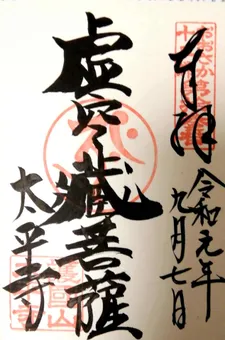 奉拝
令和元年
九月七日
虚空蔵菩薩
太平寺